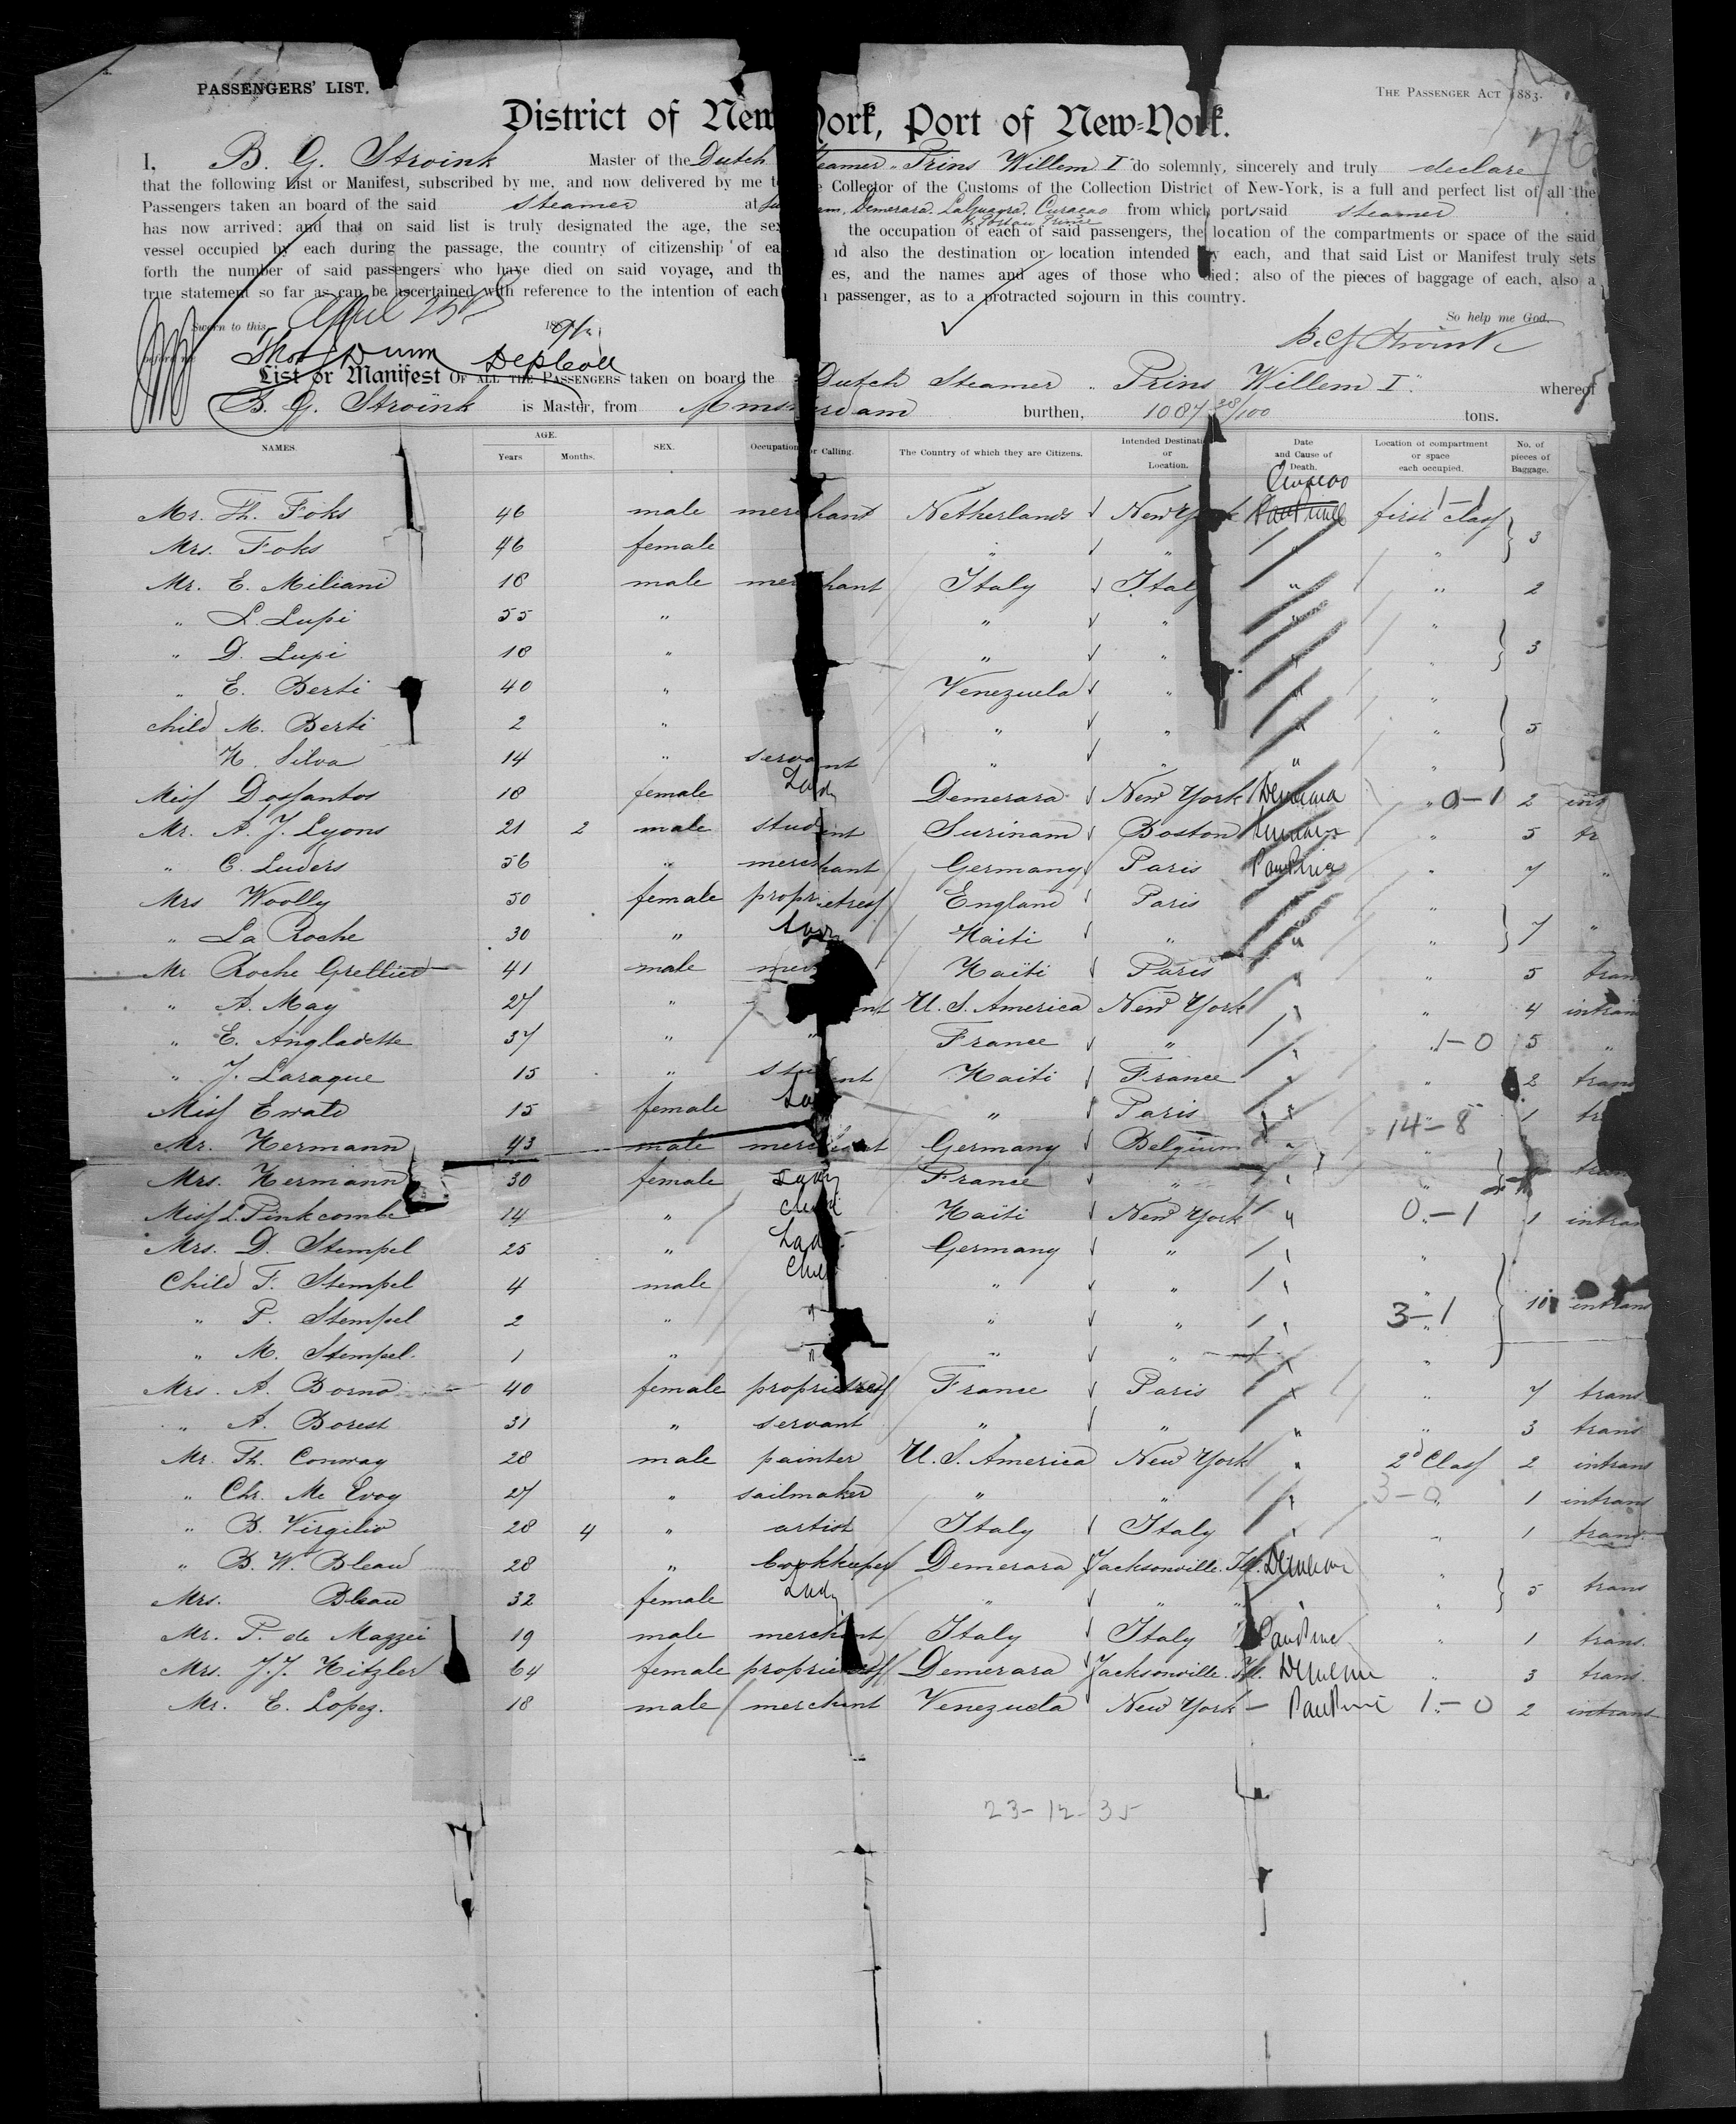 PASSENGERS' LIST.
THE PASSENGER ACT 1883.
District of New York, Port of New-York.
I, B. G. Stroink Master of the Dutch Steamer "Prins Willem I" do solemnly, sincerely and truly declare
that the following List or Manifest, subscribed by me, and now delivered by me to the Collector of the Customs of the Collection District of New-York, is a full and perfect list of all the
Passengers taken an board of the said steamer at Demerara. LaGuayra. Curacao from which port said steamer
& Port au Prince
has now arrived; and that on said list is truly designated the age, the sex the occupation of each of said passengers, the location of the compartments or space of the said
vessel occupied by each during the passage, the country of citizenship of ea nd also the destination or location intended by each, and that said List or Manifest truly sets
forth the number of said passengers who have died on said voyage, and th es, and the names and ages of those who died; also of the pieces of baggage of each, also a
true statement so far as can be ascertained with reference to the intention of each passenger, as to a protracted sojourn in this country.
So help me God.
Sworn to this April 25th
before me Thos Dunn Dep Coll
B. G. Stroink
List or Manifest OF ALL THE PASSENGERS taken on board the Dutch Steamer "Prins Willem I" whereof
B. G. Stroink is Master, from Amsterdam burthen, 1087 28/100 tons.
NAMES. AGE. Years Months. SEX. Occupation or Calling. The Country of which they are Citizens. Intended Destination or Location. Date and Cause of Death. Location of compartment or space each occupied. No. of pieces of Baggage.
Curacao 1-1
Mr. Th. Foks 46 male merchant Netherlands New York first class
Mrs. Foks 46 female " " " " 3
Mr. E. Miliani 18 male merchant Italy Italy " " 2
" L. Lupi 55 " " " " "
" D. Lupi 18 " " " " " 3
" E. Berti 40 " Venezuela " " "
child M. Berti 2 " " " " " 5
H. Silva 14 " servant " " " "
Miss Dossantos 18 female Lady Demerara New York Demerara " 0-1 2
Mr. A. J. Lyons 21 2 male student Surinam Boston " 5 tr
" C. Luders 56 " merchant Germany Paris PauPrince " 7 "
Mrs Woolly 50 female proprietress England Paris "
" La Roche 30 " Lady Haiti " " " 7 "
Mr Roche Grellier 41 male Haïti Paris " " 5 tran
" A. May 27 " U. S. America New York " " 4 intran
" E. Angladette 37 " " France " " 1-0 5 "
" J. Laraque 15 " student Haïti France " " 2 trans
Miss Ewald 15 female Lady " Paris " " 1 tr
14-8
Mr. Hermann 43 male merchant Germany Belgium " "
Mrs. Hermann 30 female Lady France " " " tran
Miss L. Pinkcombe 14 " Child Haïti New York " 0-1 1 intran
Mrs. D. Stempel 25 " Lady Germany " " "
Child F. Stempel 4 male Child " " " " 10 intrans
" P. Stempel 2 " " " " " 3-1
" M. Stempel. 1 " " " " " "
Mrs. A. Borno 40 female proprietress France Paris " " 7 trans
" A. Borest 31 " servant " " " " 3 trans
Mr. Th. Conway 28 male painter U. S. America New York " 2d Class 2 intrans
" Chr. Mc Evoy 27 " sailmaker " " " 3-0 1 intrans
" B. Virgilio 28 4 " artist Italy Italy " " 1 trans.
" B. W. Bleau 28 " bookkeeper Demerara Jacksonville. Fl. Demerara "
Mrs. Bleau 32 female Lady " " " " 5 trans
Mr. P. de Mazzei 19 male merchant Italy Italy PauPrince " 1 trans.
Mrs. J. J. Hitzler 64 female proprietress Demerara Jacksonville. Fl. Demerara " 3 trans.
Mr. E. Lopez. 18 male merchant Venezuela New York PauPrince 1-0 2 intrans
23-12-35